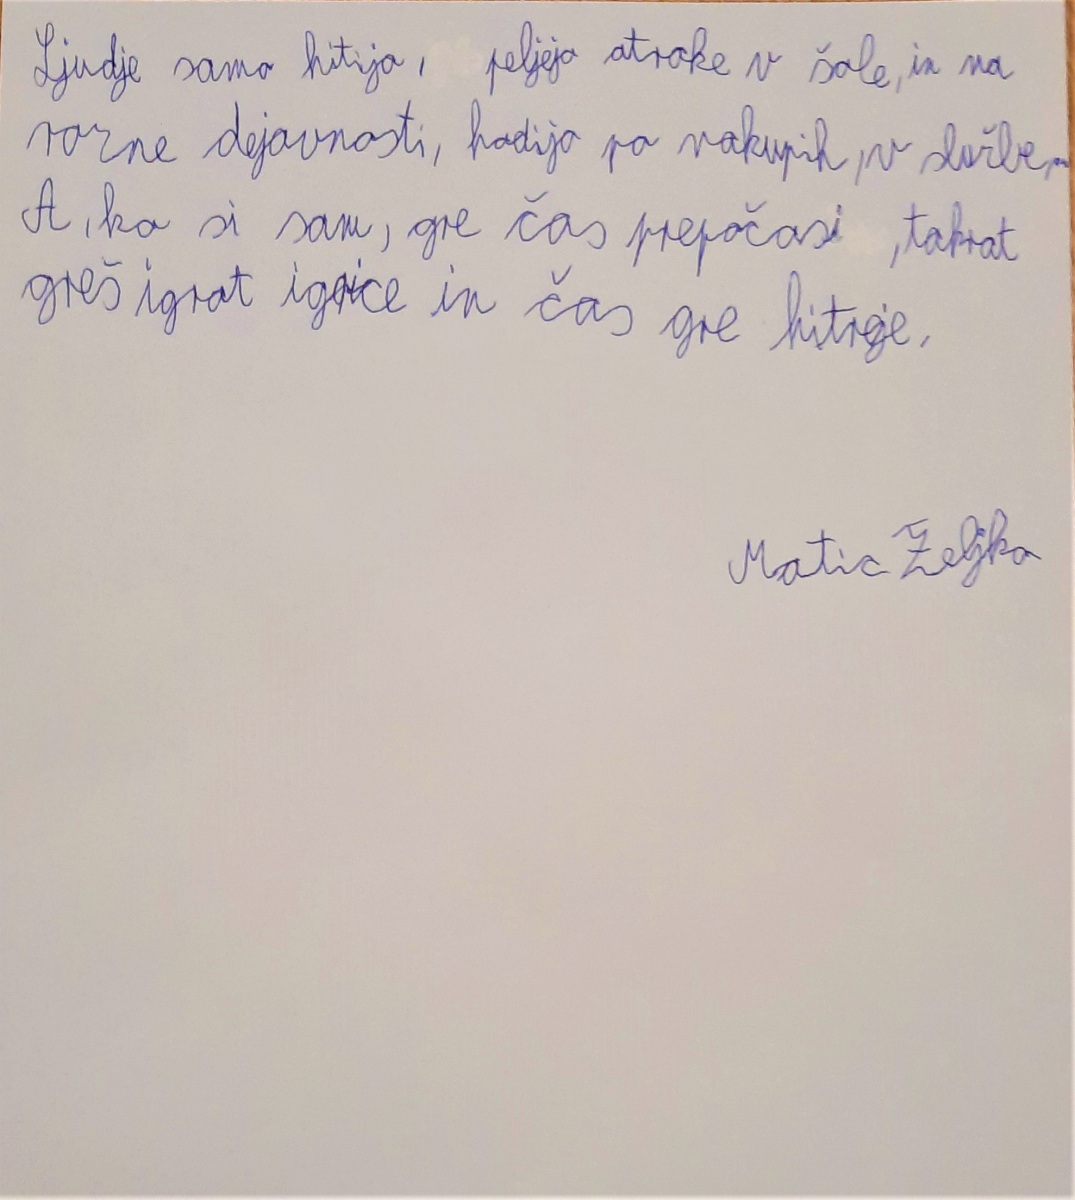 Ljudje samo hitijo, peljejo otroke v šole, in na
razne dejavnosti, hodijo po nakupih, v službe,
A, ko si sam, gre čas prepočasi, takrat
greš igrat igrice in čas gre hitreje.
Matic Željko